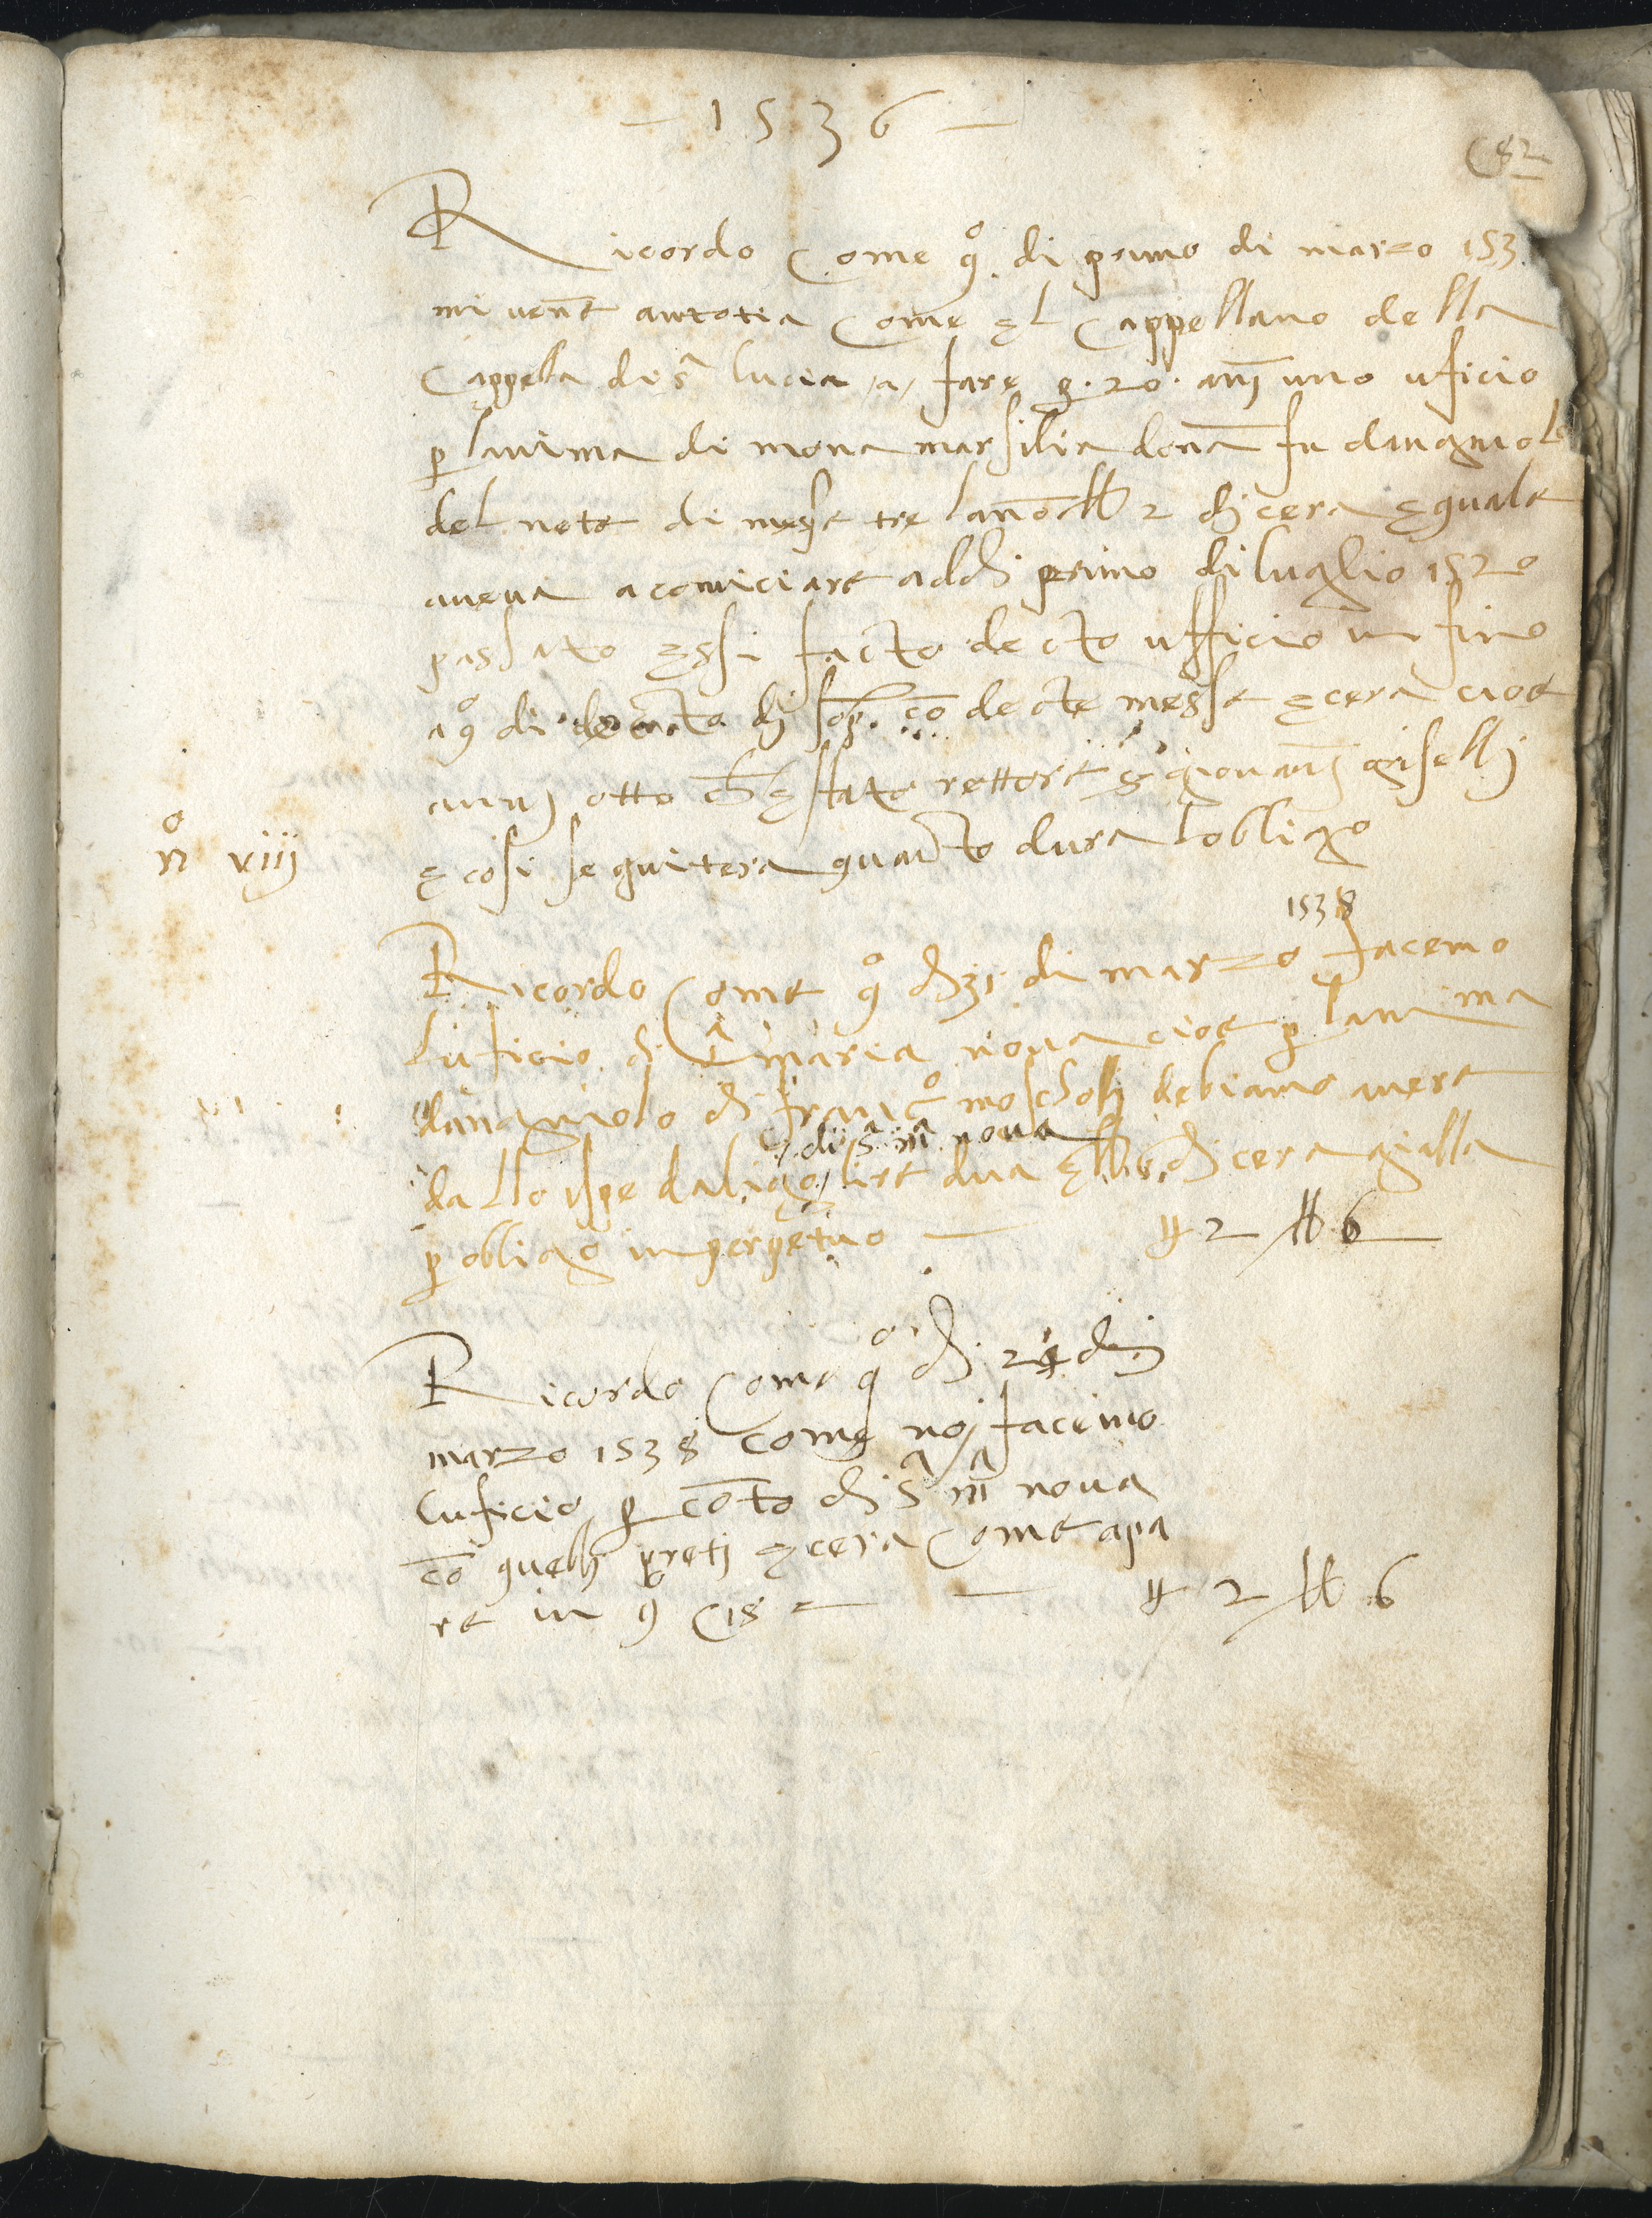 — 1536 —
Ricordo Come q° di primo di marzo 153
mi vene a notitia Come El Cappellano della
Cappella di S.ª lucia /a/ fare p. 20. anj uno uficio
p lanima di mona marsilia dona fu dangniolo
del nete di messe tre lano e lb 2 di cera Equale
aueua a cominciare addi primo di luglio 1520
passato Essi facto decto ufficio in fino
a q° di decto di sop. co decte messe e cera cioe
annj otto che stato rettore S giovanj griselli
n° viij
E cosi seguitera quanto dura lobligo
1538
Ricordo Come q° di 31 di marzo facemo
luficio di S.ª maria nova cioe p lanima
dangniolo di franc° moscholi debiamo avere
di S.ª m.ª nova
dallo spedaligo lire dua E lb 6 di cera gialla
p obligo in perpetuo — # 2 lb 6
Ricordo Come q° di 24 di
marzo 1538 come noj facemo
luficio p coto di S.ª m.ª nova
co quelli pretj E cera Come apa
re in q C 18 — # 2 lb 6